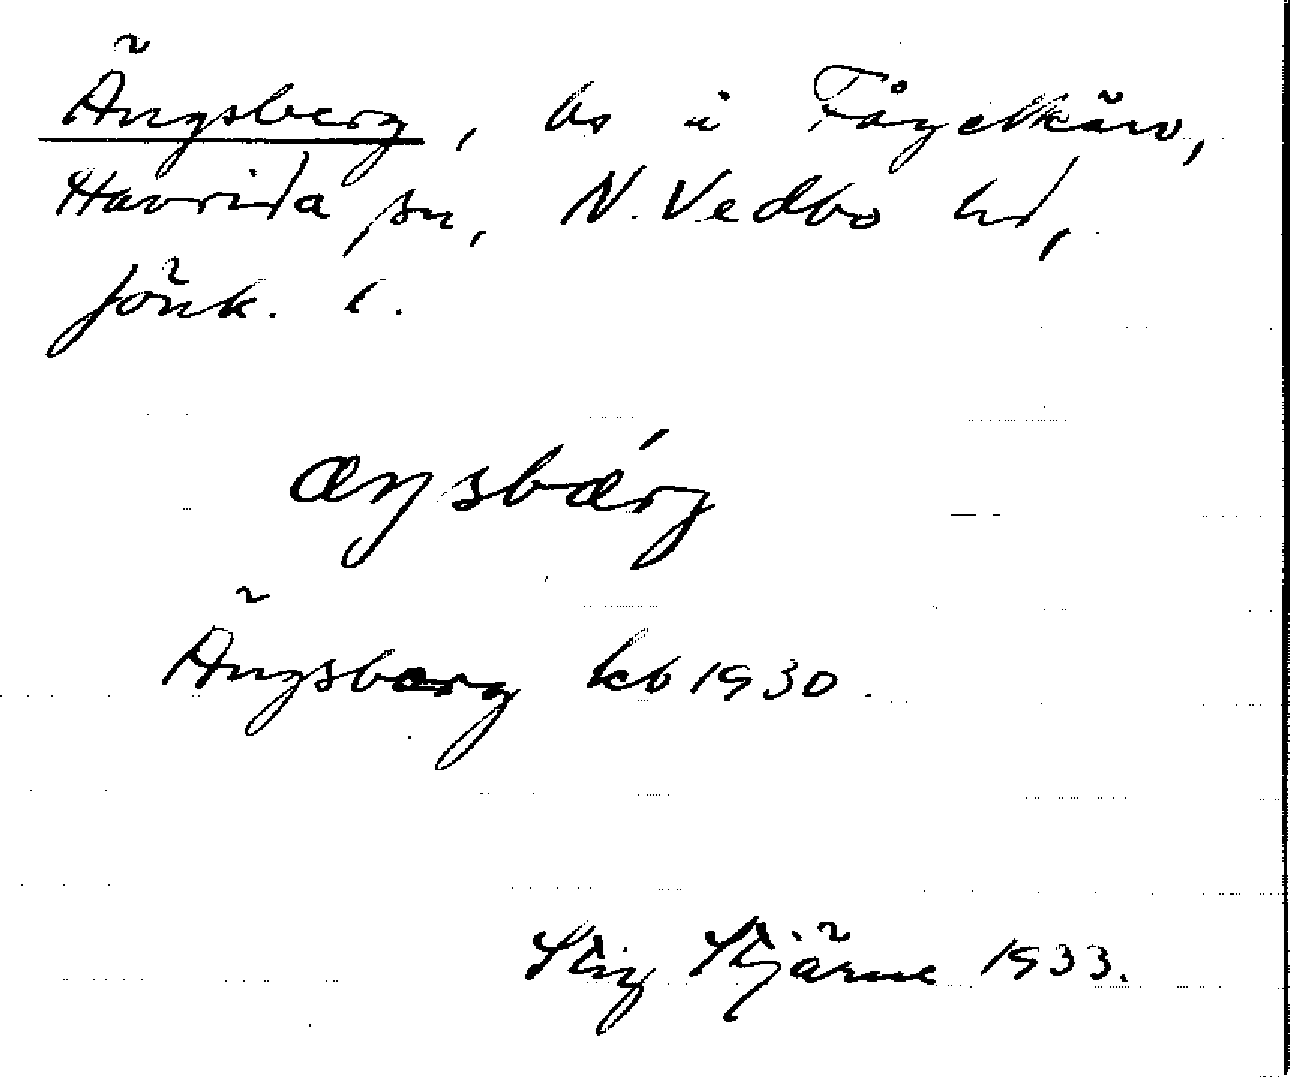 Ängsberg, bs i Fågelkärr,
Haurida sn, N. Vedbo hd,
Jönk. l.
æŋsbærg
Ängsberg kb 1930.
Stig Stjärne 1933.